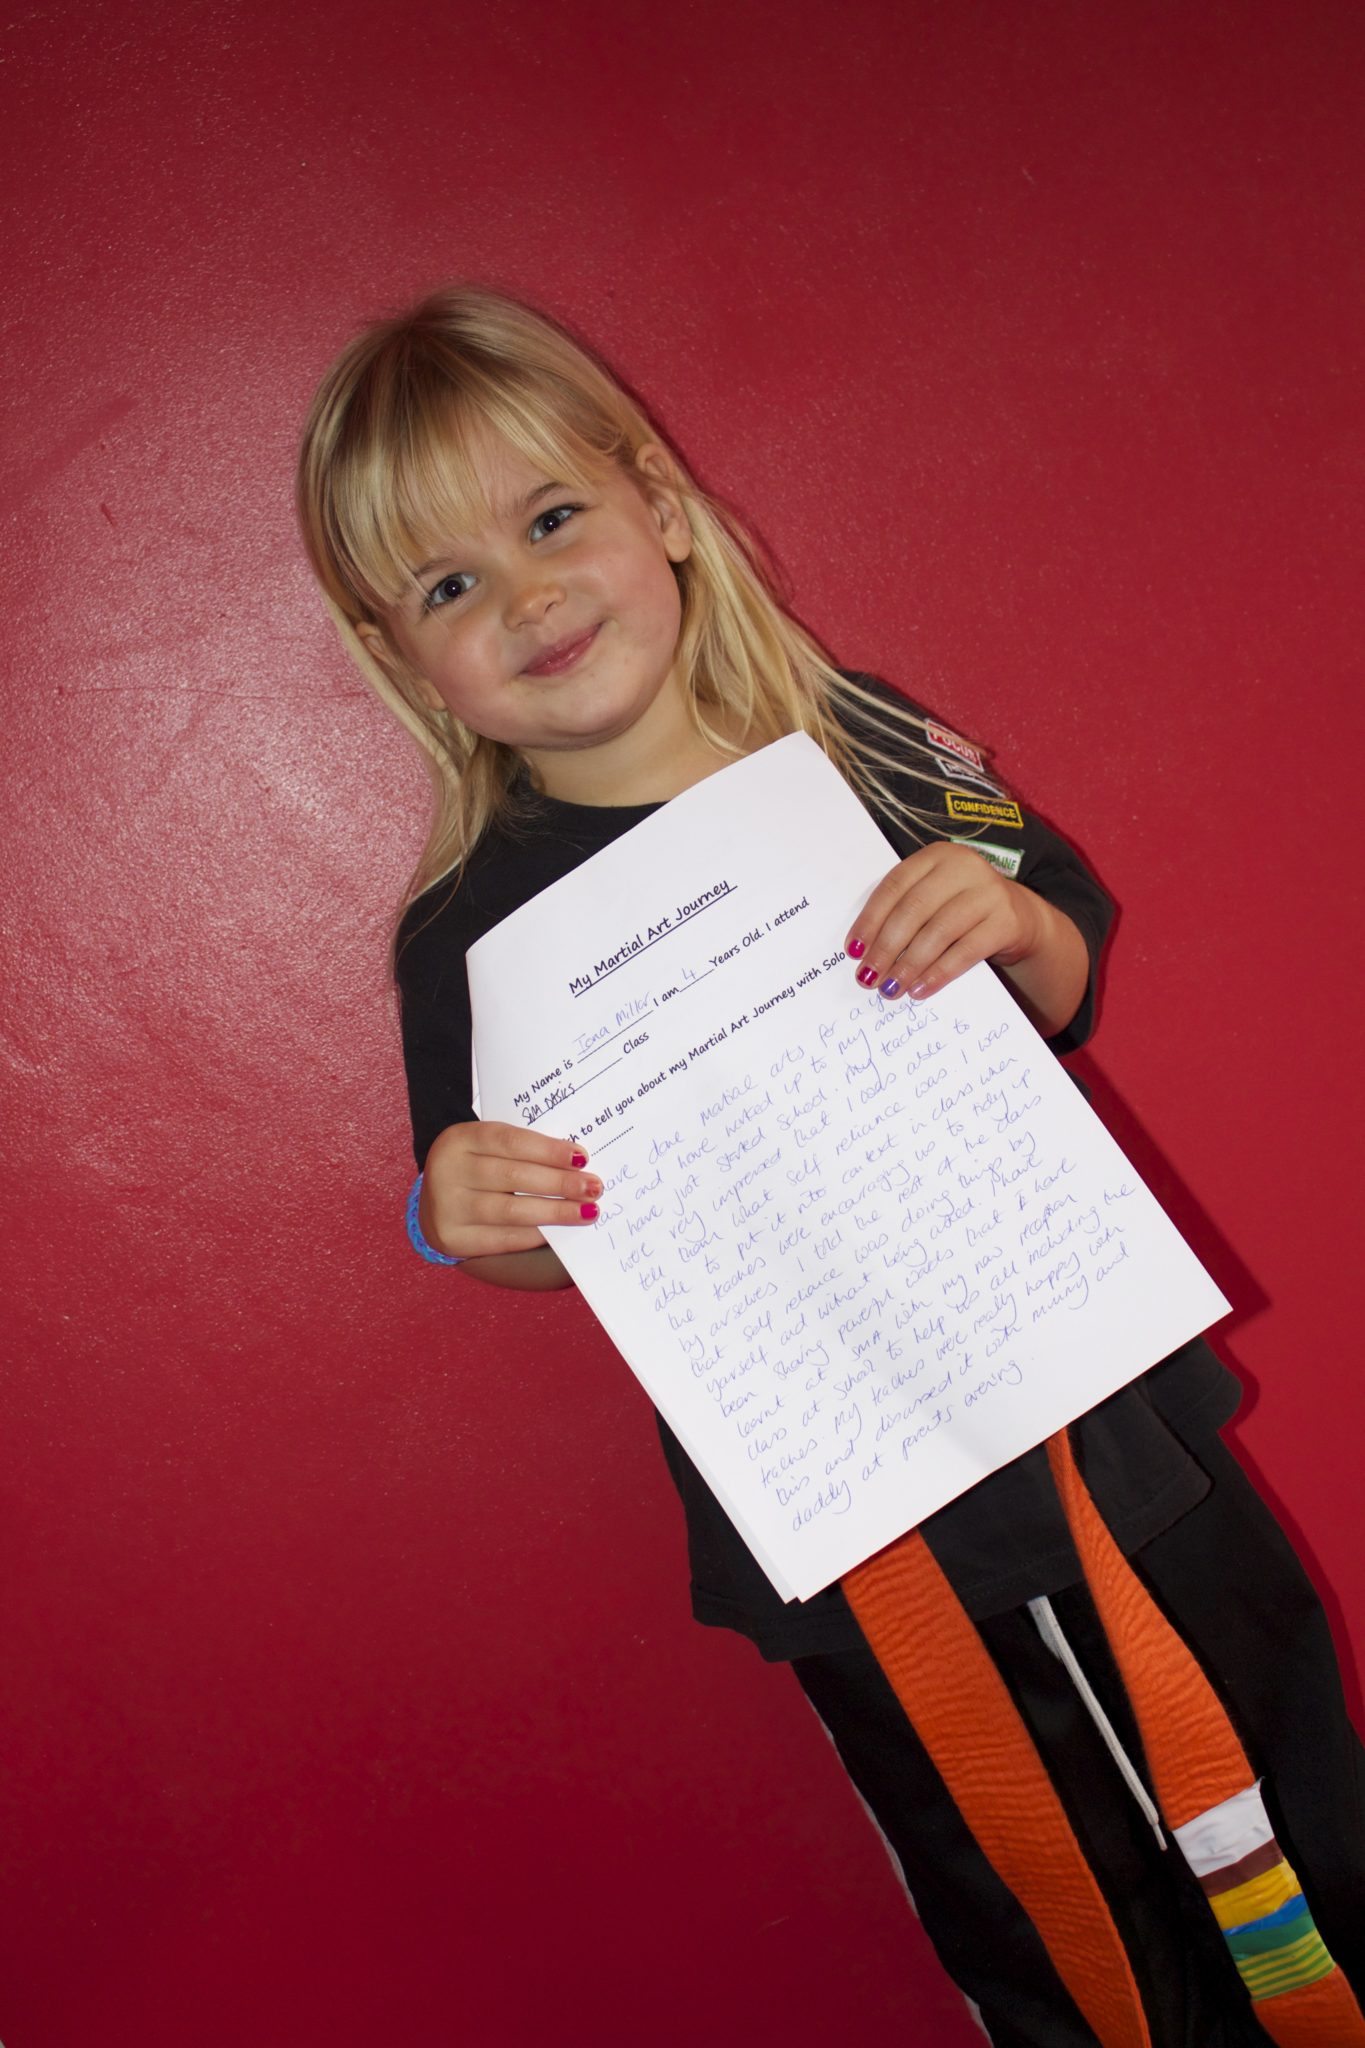 FOCUS
CONFIDENCE
My Martial Art Journey
My Name is Iona Millar I am 4 Years Old. I attend
SMA BASICS Class
to tell you about my Martial Art Journey with Solo
have done martial arts for a
now and have worked up to my orange
I have just started School. My teachers
were very impressed that I was able to
tell them what self reliance was. I was
able to put it into context in class when
the teachers were encouraging us to tidy up
by ourselves. I told the rest of the class
that self reliance was doing things by
yourself and without being asked. I have
been sharing powerful words that I have
learnt at SMA with my new reception
class at school to help us all including the
teachers. My teachers were really happy with
this and discussed it with mummy and
daddy at parents evening.